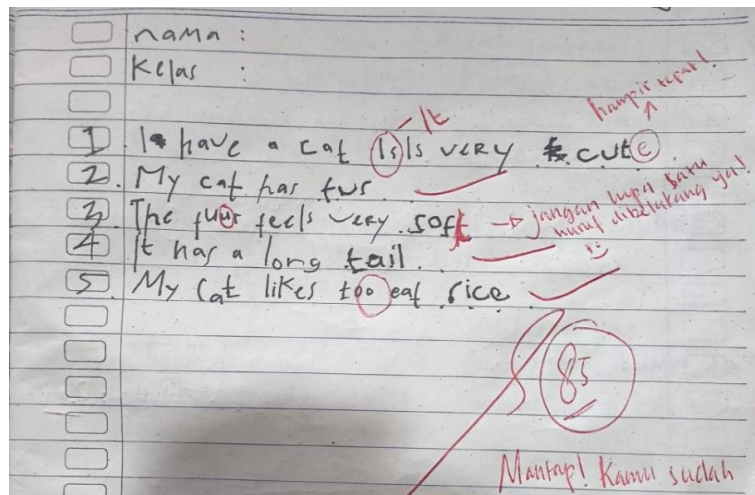 nama :
Kelas :
hampir tepat!
It
1. I have a cat Is Is very cute.
2. My cat has fur
3. The fuur feels very soft
jangan lupa satu huruf dibelakang ya!
4. It has a long tail.
5. My Cat likes too eat rice
85
Mantap! Kamu sudah